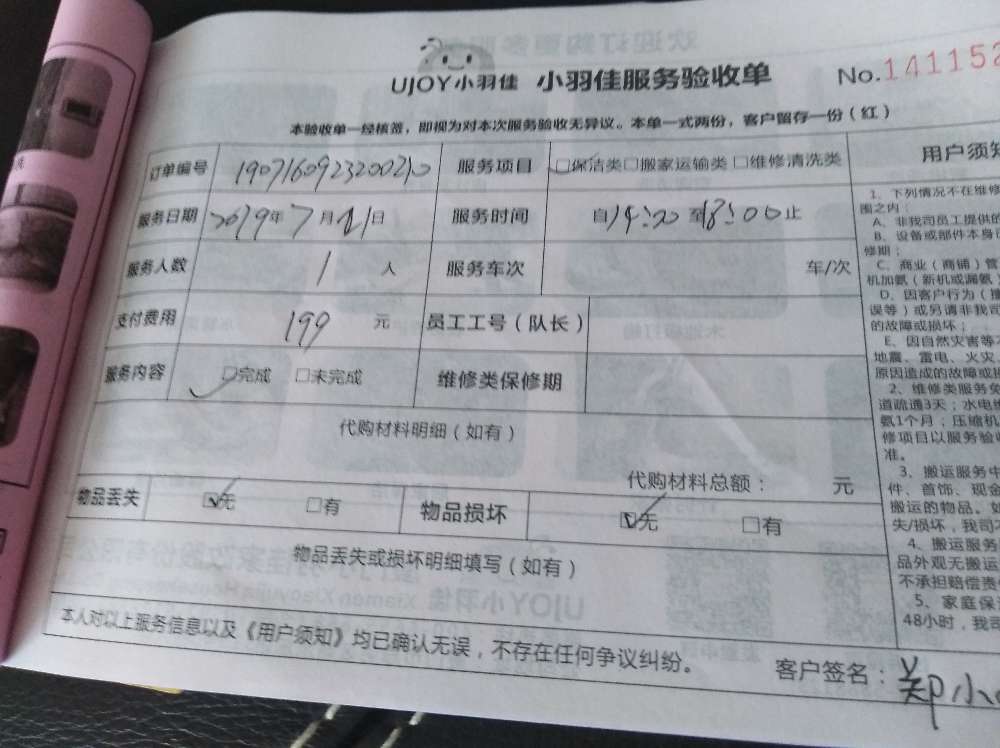 UJOY小羽佳 小羽佳服务验收单 No.141152
本验收单一经核签，即视为对本次服务验收无异议。本单一式两份，客户留存一份（红）
订单编号 服务项目 □保洁类□搬家运输类 □维修清洗类
服务日期 2019年7月21日 服务时间 自14:20至18:00止
服务人数 1人 服务车次 车/次
支付费用 199元 员工工号（队长）
服务内容 □完成 □未完成 维修类保修期
代购材料明细（如有）
代购材料总额： 元
物品丢失 ☑无 □有 物品损坏 ☑无 □有
物品丢失或损坏明细填写（如有）
本人对以上服务信息以及《用户须知》均已确认无误，不存在任何争议纠纷。
客户签名：郑小
用户须知
1、下列情况不在维修
围之内：
A、非我司员工提供的
B、设备或部件本身已
修期；
C、商业（商铺）管
机加氨（新机或漏氨
D、因客户行为（撞
误等）或另请非我司
的故障或损坏；
E、因自然灾害等不
地震、雷电、火灾
原因造成的故障或损
2、维修类服务免
道疏通3天；水电维
氨1个月；压缩机
修项目以服务验收
准。
3、搬运服务中
件、首饰、现金
搬运的物品。如
失/损坏，我司
4、搬运服务
品外观无搬运
不承担赔偿责
5、家庭保
48小时，我司